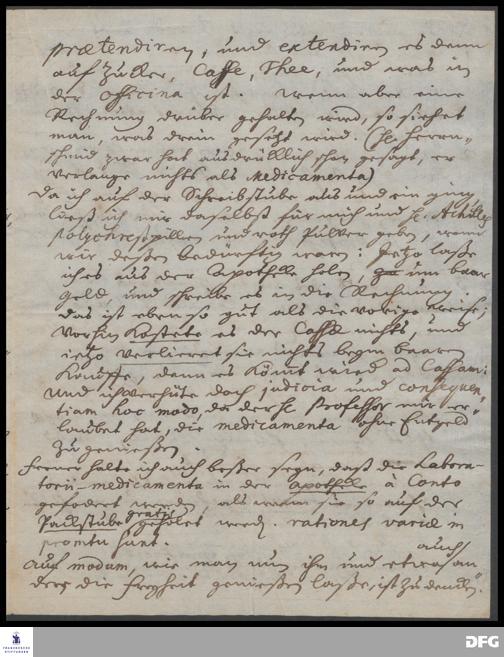 prætendiren, und extendiren es dann
auf Zucker, Caffe, Thee, und was in
der officina ist. Wenn aber eine
Rechnung drüber gehalten wird, so siehet
man, was drein gesetzt wird. (H. Herrn-
schmid zwar hat ausdrücklich schon gesagt, er
verlange nichts als Medicamenta)
Da ich auf der Schreibstube aus und ein ging
ließ ich mir daselbst für mich und H. Achilles
polychrestpillen und roth Pulver geben, wenn
wir deßen bedürftig waren: Jetzo laße
ich es aus der Apotheke holen, um baar
geld, und schreibe es in die Rechnung.
das ist eben so gut als die vorige weise;
Vorhin Kostete es der Casse nichts, und
ietzo verlieret sie nichts beym baaren
Kauffe, denn es kömt wieder ad Cassam:
Und ich verhüte doch judicia und consequen-
tiam hoc modo, da der H. Professor mir er-
laubet hat, die medicamenta ohne Entgeld
zu genießen.
ferner halte ich auch beßer seyn, daß die Labora-
torii-medicamenta in der Apotheke à Conto
gefodert werden, als wenn sie so auf der
Paulstube gratis geholet werd. rationes variæ in
promtu sunt.
Auf modum, wie man nun ihm und etwa auch an
dern die Freyheit genießen laße, ist zu dencken.
FRANCKESCHE
STIFTUNGEN
DFG